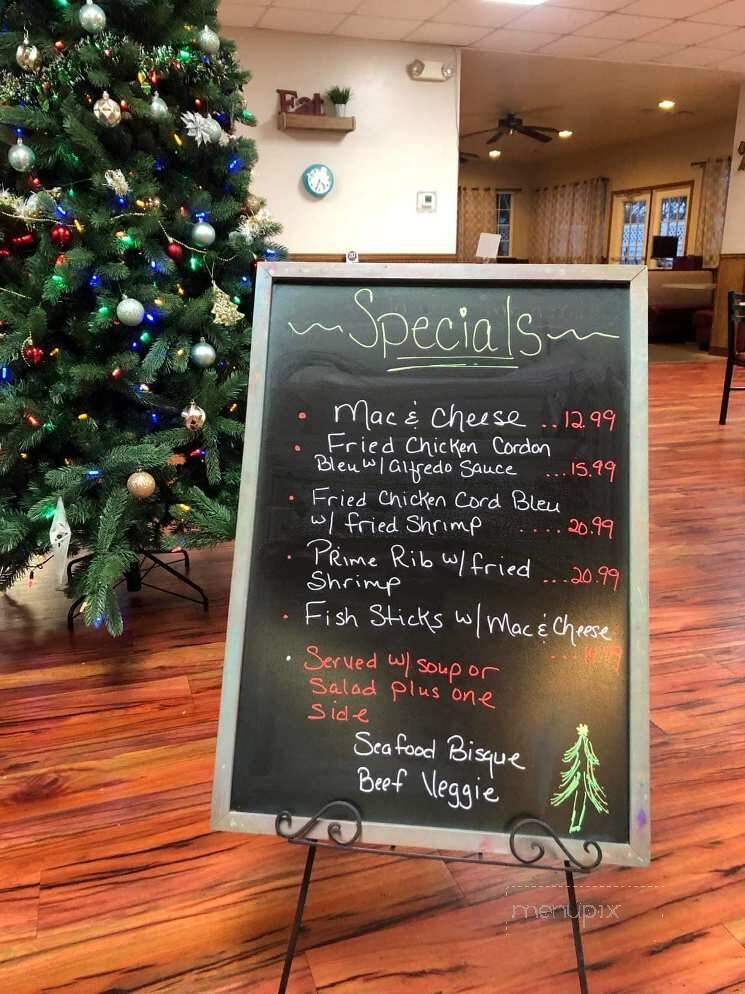 Eat
~Specials~
• Mac & Cheese ..12.99
• Fried Chicken Cordon
Bleu w/ alfredo Sauce ...15.99
• Fried Chicken Cord Bleu
w/ fried Shrimp ....20.99
• Prime Rib w/ fried
Shrimp ...20.99
• Fish Sticks w/ Mac & Cheese
• Served w/ soup or
Salad plus one
Side
Seafood Bisque
Beef Veggie
menupix